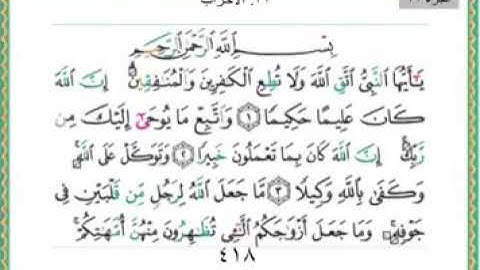 بِسْمِ اللَّهِ الرَّحْمَٰنِ الرَّحِيمِ
يَٰٓأَيُّهَا النَّبِيُّ اتَّقِ اللَّهَ وَلَا تُطِعِ الْكَٰفِرِينَ وَالْمُنَٰفِقِينَ ۗ إِنَّ اللَّهَ
كَانَ عَلِيمًا حَكِيمًا ١ وَاتَّبِعْ مَا يُوحَىٰٓ إِلَيْكَ مِن
رَّبِّكَ ۚ إِنَّ اللَّهَ كَانَ بِمَا تَعْمَلُونَ خَبِيرًا ٢ وَتَوَكَّلْ عَلَى اللَّهِ ۚ
وَكَفَىٰ بِاللَّهِ وَكِيلًا ٣ مَّا جَعَلَ اللَّهُ لِرَجُلٍ مِّن قَلْبَيْنِ فِي
جَوْفِهِ ۚ وَمَا جَعَلَ أَزْوَٰجَكُمُ الَّٰٓـِٔي تُظَٰهِرُونَ مِنْهُنَّ أُمَّهَٰتِكُمْ ۚ
٤١٨